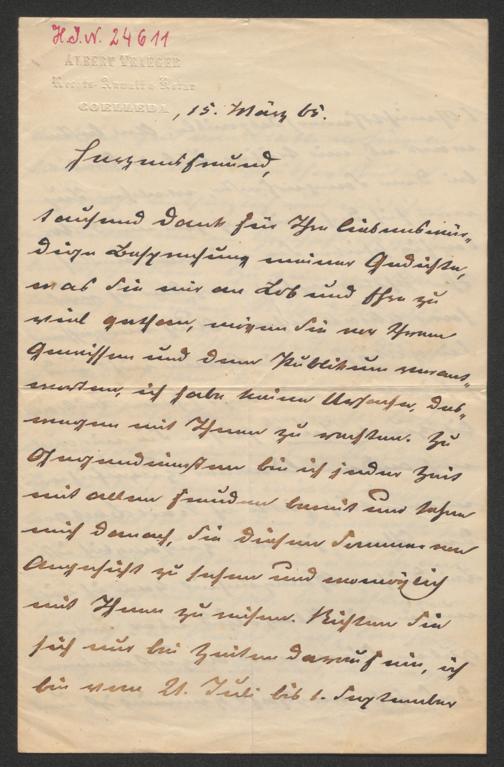 H.I.N. 24611
ALBERT TRAEGER
Rechts-Anwalt & Notar
COELLEDA
, 15. März 65.
Herzensfreund,
tausend Dank für Ihre liebenswür-
dige Besprechung meiner Gedichte,
was Sie mir an Lob und Ehre zu
viel gethan, mögen Sie vor Ihrem
Gewissen und dem Publikum verant-
worten, ich habe keine Ursache, des-
wegen mit Ihnen zu rechten. Zu
Gegendiensten bin ich jeder Zeit
mit allen Freuden bereit und sehne
mich danach, Sie diesen Sommer von
Angesicht zu sehen und womöglich
mit Ihnen zu reisen. Richten Sie
sich nur bei Zeiten darauf ein, ich
bin vom 21. Juli bis 1. September